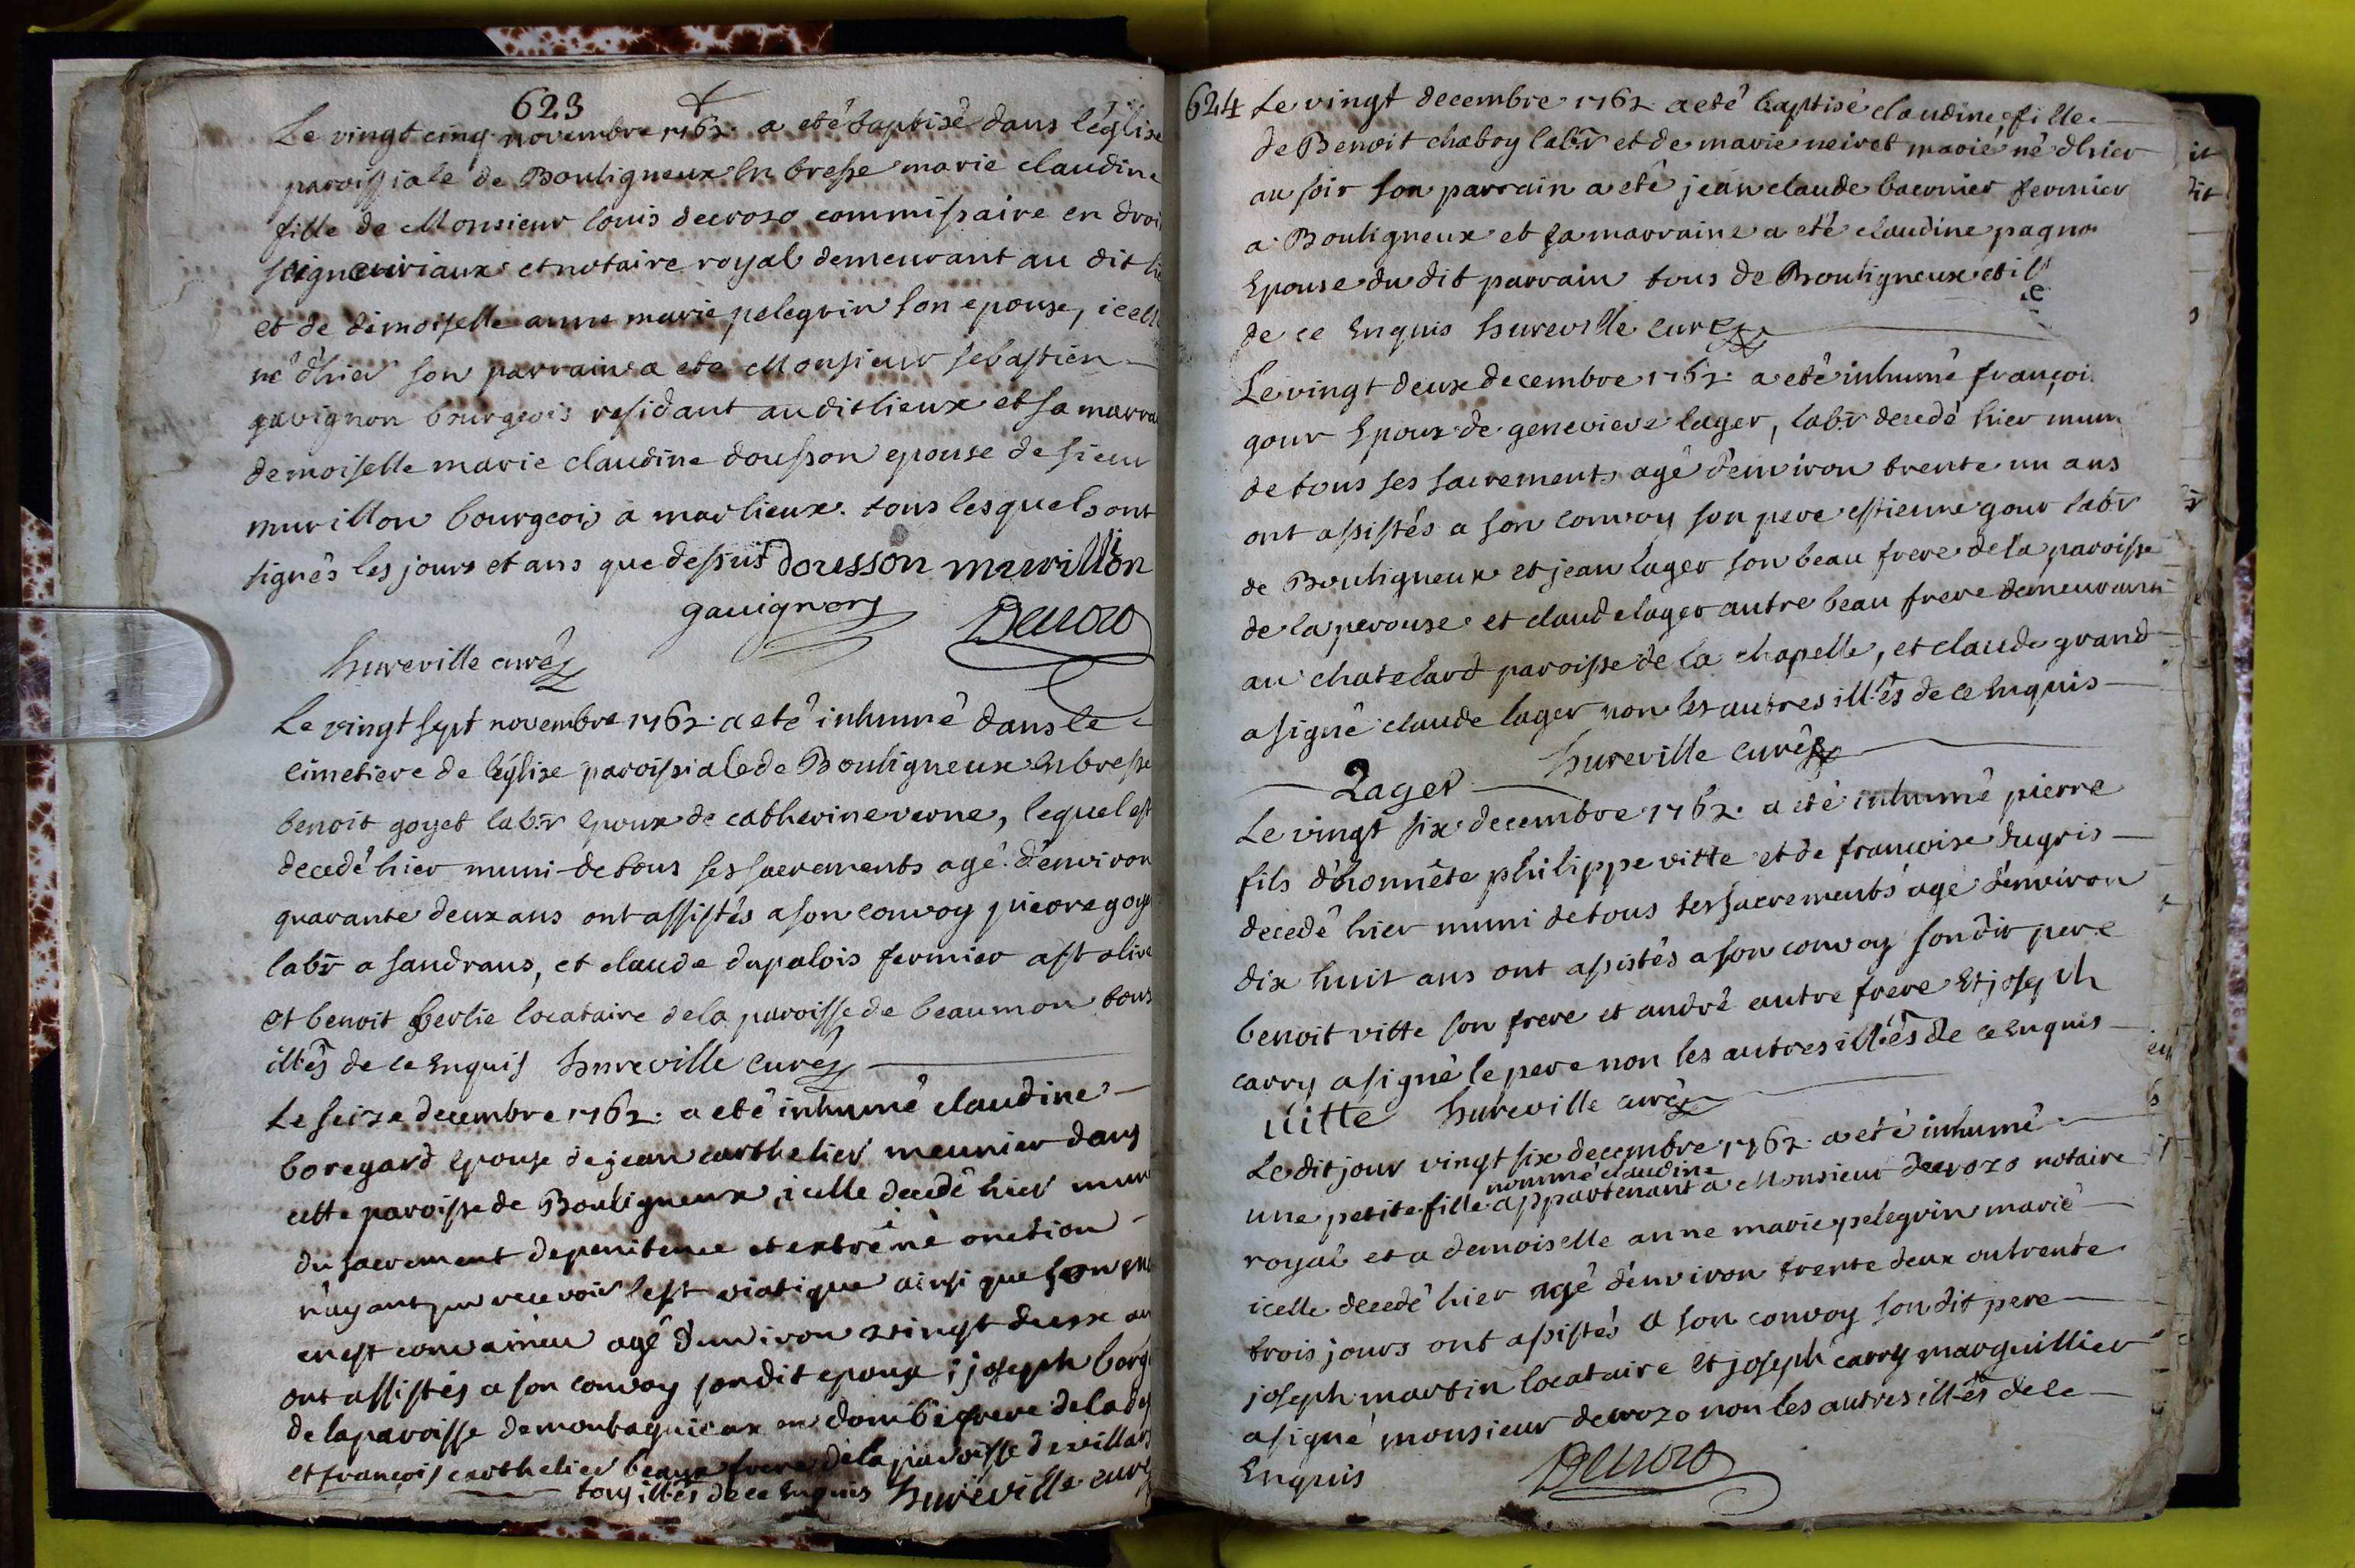 623
Le vingt cinq novembre 1762. a eté baptisé dans léglise
paroissiale de Bouligneux En bresse marie claudine
fille de Monsieur louis decrozo commissaire en droi
seigneuriaux et notaire royal demeurant au dit
et de demoiselle anne marie pelegrin son epouse, icelle
né d'hier son parrain a ete Monsieur sebastien
gavignon bourgeois residant audit lieux et sa marra
demoiselle marie claudine dousson epouse de sieur
murillon bourgeois a marlieux. tous lesquels ont
signés les jours et ans que dessus dousson murillon
gauignon Decrozo
hureville curé
Le vingt sept novembre 1762. a eté inhumé dans le
cimetiere de léglise paroissiale de Bouligneux En bresse
benoit goyet labr Epoux de catherine verne, lequel est
decedé hier muni de tous ses sacrements agé d'environ
quarante deux ans ont assistés a son convoy pierre goye
labr a sandrans, et claude dupalois fermier a st olive
et benoit berlie locataire de la paroisse de beaumon tous
illés de ce Enquis hureville curé
Le seize decembre 1762. a eté inhumé claudine
boregard Epouse de jean carthelier meunier dans
cette paroisse de Bouligneux, icelle decedé hier mun
du sacrement de penitence et extrême onction
n'ayant pu recevoir le st viatique ainsi que son
en est convaincu agé d'environ vingt deux an
ont assistés a son convoy son dit epoux ; joseph borg
de la paroisse de montagnieux en dombe frere de la d
et françois carthelier beaux frere de la paroisse de villars
tous illés de ce Enquis hureville curé
624 Le vingt decembre 1762. a eté baptisé claudine fille
de Benoit chaboy labr et de marie neiret marié né d'hier
au soir son parrain a eté jean claude baernier fermier
a Bouligneux et sa marraine a eté claudine pagno
Epouse du dit parrain tous de Bouligneux et ill
de ce Enquis hureville curé
Le vingt deux decembre 1762. a eté inhumé françoi
gour Epoux de genevieve lager, labr decedé hier mun
de tous ses sacrements agé d'environ trente un ans
ont assistés a son convoy son pere estienne gour labr
de Bouligneux et jean lager son beau frere de la paroisse
de la perouse et claude lager autre beau frere demeurant
au chatelard paroisse de la chapelle, et claude grand
a signé claude lager non les autres illés de ce Enquis
Lager hureville curé
Le vingt six decembre 1762. a eté inhumé pierre
fils d'honnête philippe vitte et de francoise dugris
decedé hier muni de tous ses sacrements agé d'environ
dix huit ans ont assistés a son convoy son dit pere
benoit vitte son frere et andré autre frere Et joseph
carry a signé le pere non les autres illés de ce Enquis
uitte hureville curé
Le dit jour vingt six decembre 1762. a eté inhumé
nommé claudine
une petite fille appartenant a Monsieur decrozo notaire
royal et a demoiselle anne marie pelegrin marié
icelle decedé hier agé d'environ trente deux ou trente
trois jours ont assistés a son convoy son dit pere
joseph martin locataire Et joseph carry marguillier
a signé monsieur decrozo non les autres illés de ce
Enquis Decrozo